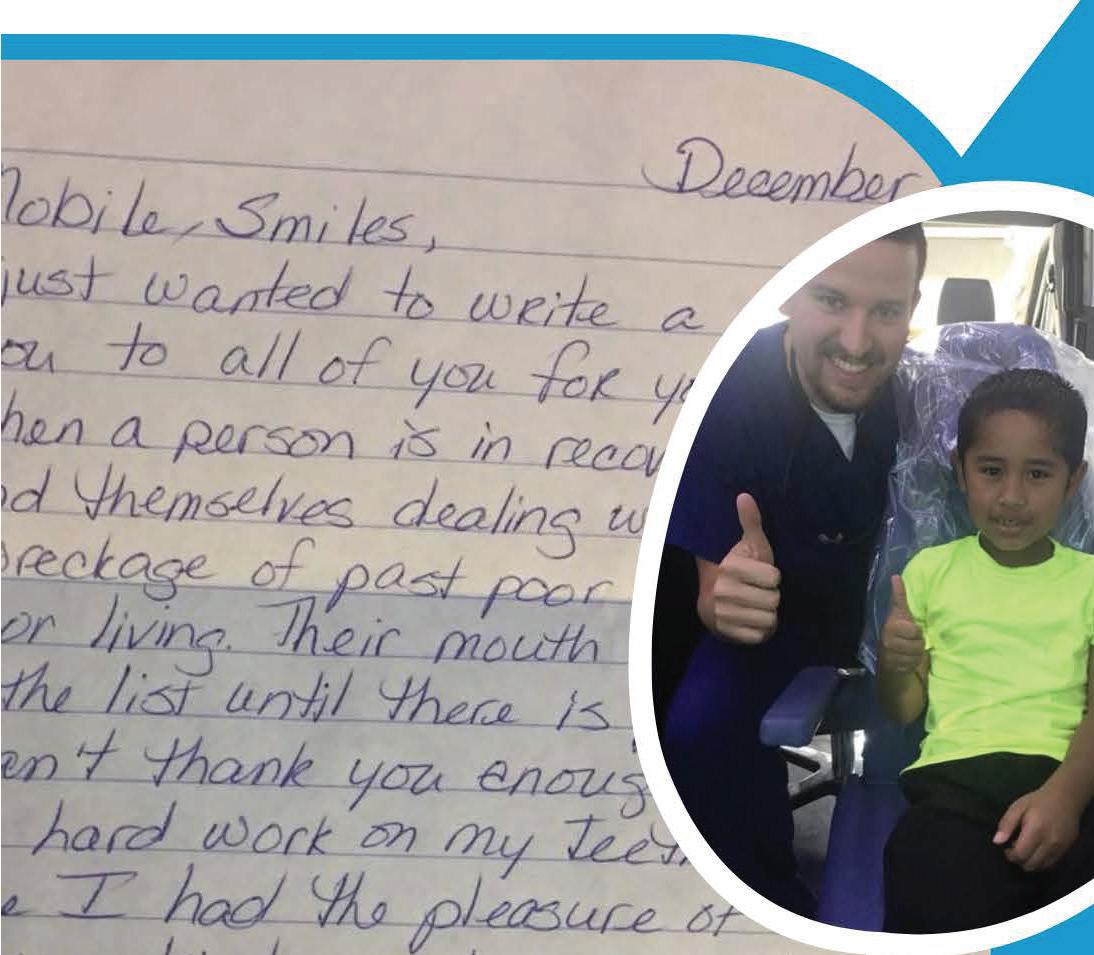 December
Mobile Smiles,
just wanted to write a
ou to all of you for yo
hen a person is in recov
d themselves dealing w
reckage of past poor
or living. Their mouth
the list until there is
en't thank you enoug
hard work on my Teeth
e I had the pleasure of